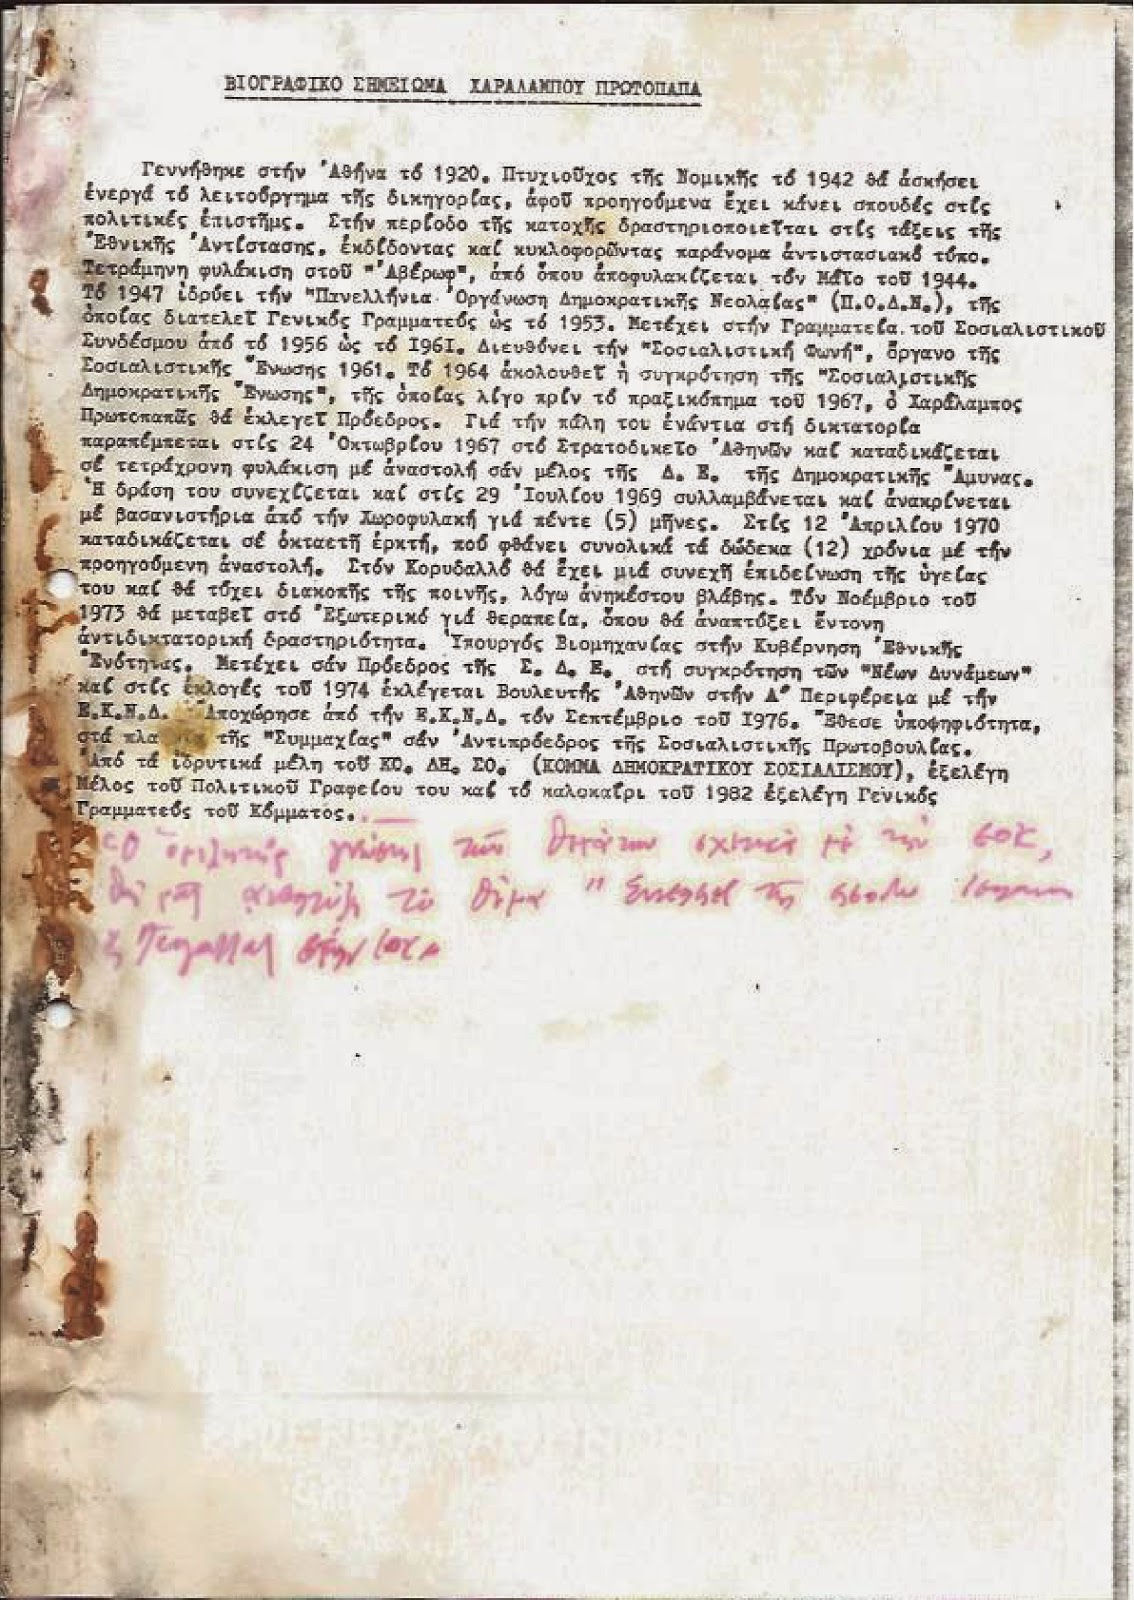 ΒΙΟΓΡΑΦΙΚΟ ΣΗΜΕΙΩΜΑ ΧΑΡΑΛΑΜΠΟΥ ΠΡΩΤΟΠΑΠΑ
Γεννήθηκε στήν Ἀθήνα τό 1920. Πτυχιοῦχος τῆς Νομικῆς τό 1942 θά ἀσκήσει
ἐνεργά τό λειτούργτημα τῆς δικηγορίας, ἀφοῦ προηγούμενα ἔχει κάνει σπουδές στίς
πολιτικές ἐπιστῆμς. Στήν περίοδο τῆς κατοχῆς δραστηριοποιεῖται στίς τάξεις τῆς
Ἐθνικῆς Ἀντίστασης, ἐκδίδοντας καί κυκλοφορῶντας παράνομα ἀντιστασιακό τύπο.
Τετράμηνη φυλάκιση στοῦ "Ἀβέρωφ", ἀπό ὅπου ἀποφυλακίζεται τόν Μάϊο τοῦ 1944.
Τό 1947 ἱδρύει τήν "Πανελλήνια Ὀργάνωση Δημοκρατικῆς Νεολαίας" (Π.Ο.Δ.Ν.), τῆς
ὁποίας διατελεῖ Γενικός Γραμματεύς ὡς τό 1953. Μετέχει στήν Γραμματεία τοῦ Σοσιαλιστικοῦ
Συνδέσμου ἀπό τό 1956 ὡς τό Ι96Ι. Διευθύνει τήν "Σοσιαλιστική Φωνή", ὄργανο τῆς
Σοσιαλιστικῆς Ἕνωσης 1961. Τό 1964 ἀκολουθεῖ ἡ συγκρότηση τῆς "Σοσιαλιστικῆς
Δημοκρατικῆς Ἕνωσης", τῆς ὁποίας λίγο πρίν τό πραξικόπημα τοῦ 1967, ὁ Χαράλαμπος
Πρωτοπαπᾶς θά ἐκλεγεῖ Πρόεδρος. Γιά τήν πάλη του ἐνάντια στή δικτατορία
παραπέμπεται στίς 24 Ὀκτωβρίου 1967 στό Στρατοδικεῖο Ἀθηνῶν καί καταδικάζεται
σέ τετράχρονη φυλάκιση μέ ἀναστολή σάν μέλος τῆς Δ. Ε. τῆς Δημοκρατικῆς Ἄμυνας.
Ἡ δράση του συνεχίζεται καί στίς 29 Ἰουλίου 1969 συλλαμβάνεται καί ἀνακρίνεται
μέ βασανιστήρια ἀπό τήν Χωροφυλακή γιά πέντε (5) μῆνες. Στίς 12 Ἀπριλίου 1970
καταδικάζεται σέ ὀκταετῆ ἑρκτή, πού φθάνει συνολικά τά δώδεκα (12) χρόνια μέ τήν
προηγούμενη ἀναστολή. Στόν Κορυδαλλό θά ἔχει μιά συνεχῆ ἐπιδείνωση τῆς ὑγείας
του καί θά τύχει διακοπῆς τῆς ποινῆς, λόγω ἀνηκέστου βλάβης. Τόν Νοέμβριο τοῦ
1973 θά μεταβεῖ στό Ἐξωτερικό γιά θεραπεία, ὅπου θά ἀναπτύξει ἔντονη
ἀντιδικτατορική δραστηριότητα. Ὑπουργός Βιομηχανίας στήν Κυβέρνηση Ἐθνικῆς
Ἑνότητας. Μετέχει σάν Πρόεδρος τῆς Σ. Δ. Ε. στή συγκρότηση τῶν "Νέων Δυνάμεων"
καί στίς ἐκλογές τοῦ 1974 ἐκλέγεται Βουλευτής Ἀθηνῶν στήν Α' Περιφέρεια μέ τήν
Ε.Κ.Ν.Δ. Ἀποχώρησε ἀπό τήν Ε.Κ.Ν.Δ. τόν Σεπτέμβριο τοῦ Ι976. Ἔθεσε ὑποψηφιότητα,
στά τῆς "Συμμαχίας" σάν Ἀντιπρόεδρος τῆς Σοσιαλιστικῆς Πρωτοβουλίας.
Ἀπό τά ἱδρυτικά μέλη τοῦ ΚΟ. ΔΗ. ΣΟ. (ΚΟΜΜΑ ΔΗΜΟΚΡΑΤΙΚΟΥ ΣΟΣΙΑΛΙΣΜΟΥ), ἐξελέγη
Μέλος τοῦ Πολιτικοῦ Γραφείου του καί τό καλοκαῖρι τοῦ 1982 ἐξελέγη Γενικός
Γραμματεύς τοῦ Κόμματος.